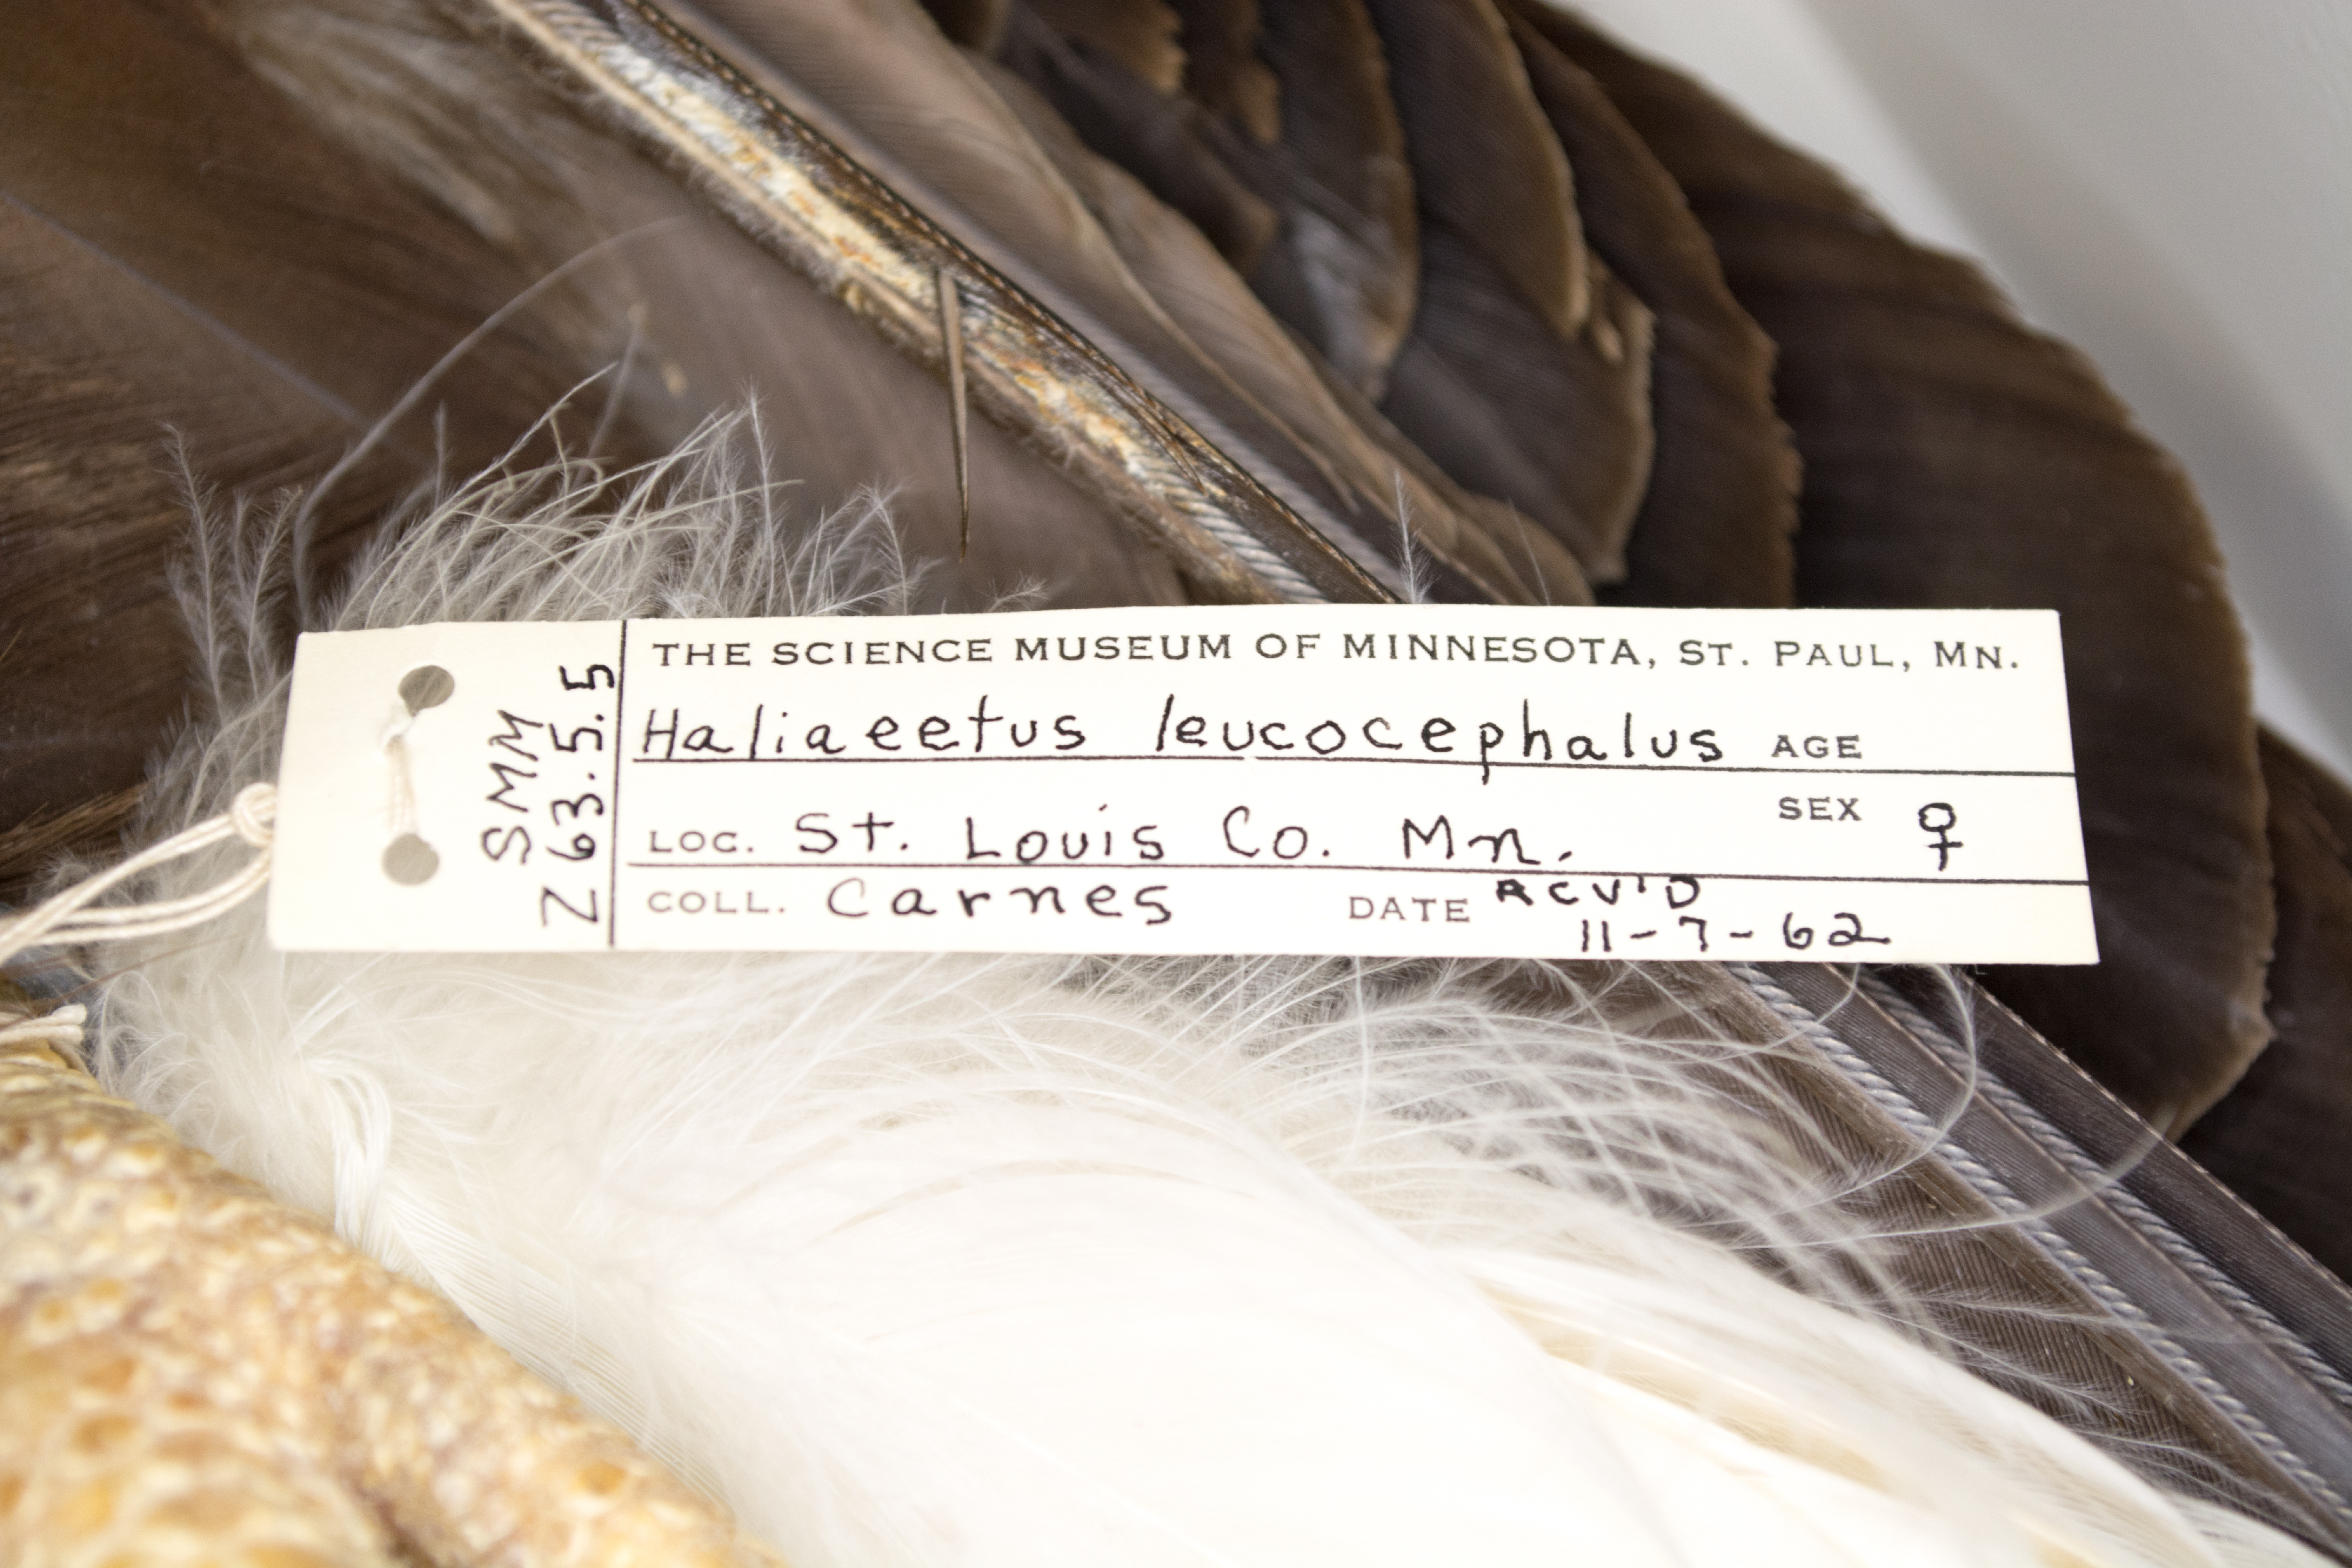 SMM
Z 63.5.5
THE SCIENCE MUSEUM OF MINNESOTA, ST. PAUL, MN.
Haliaeetus leucocephalus AGE
LOC. St. Louis Co. Mn. SEX ♀
COLL. Carnes DATE RCV'D
11-7-62